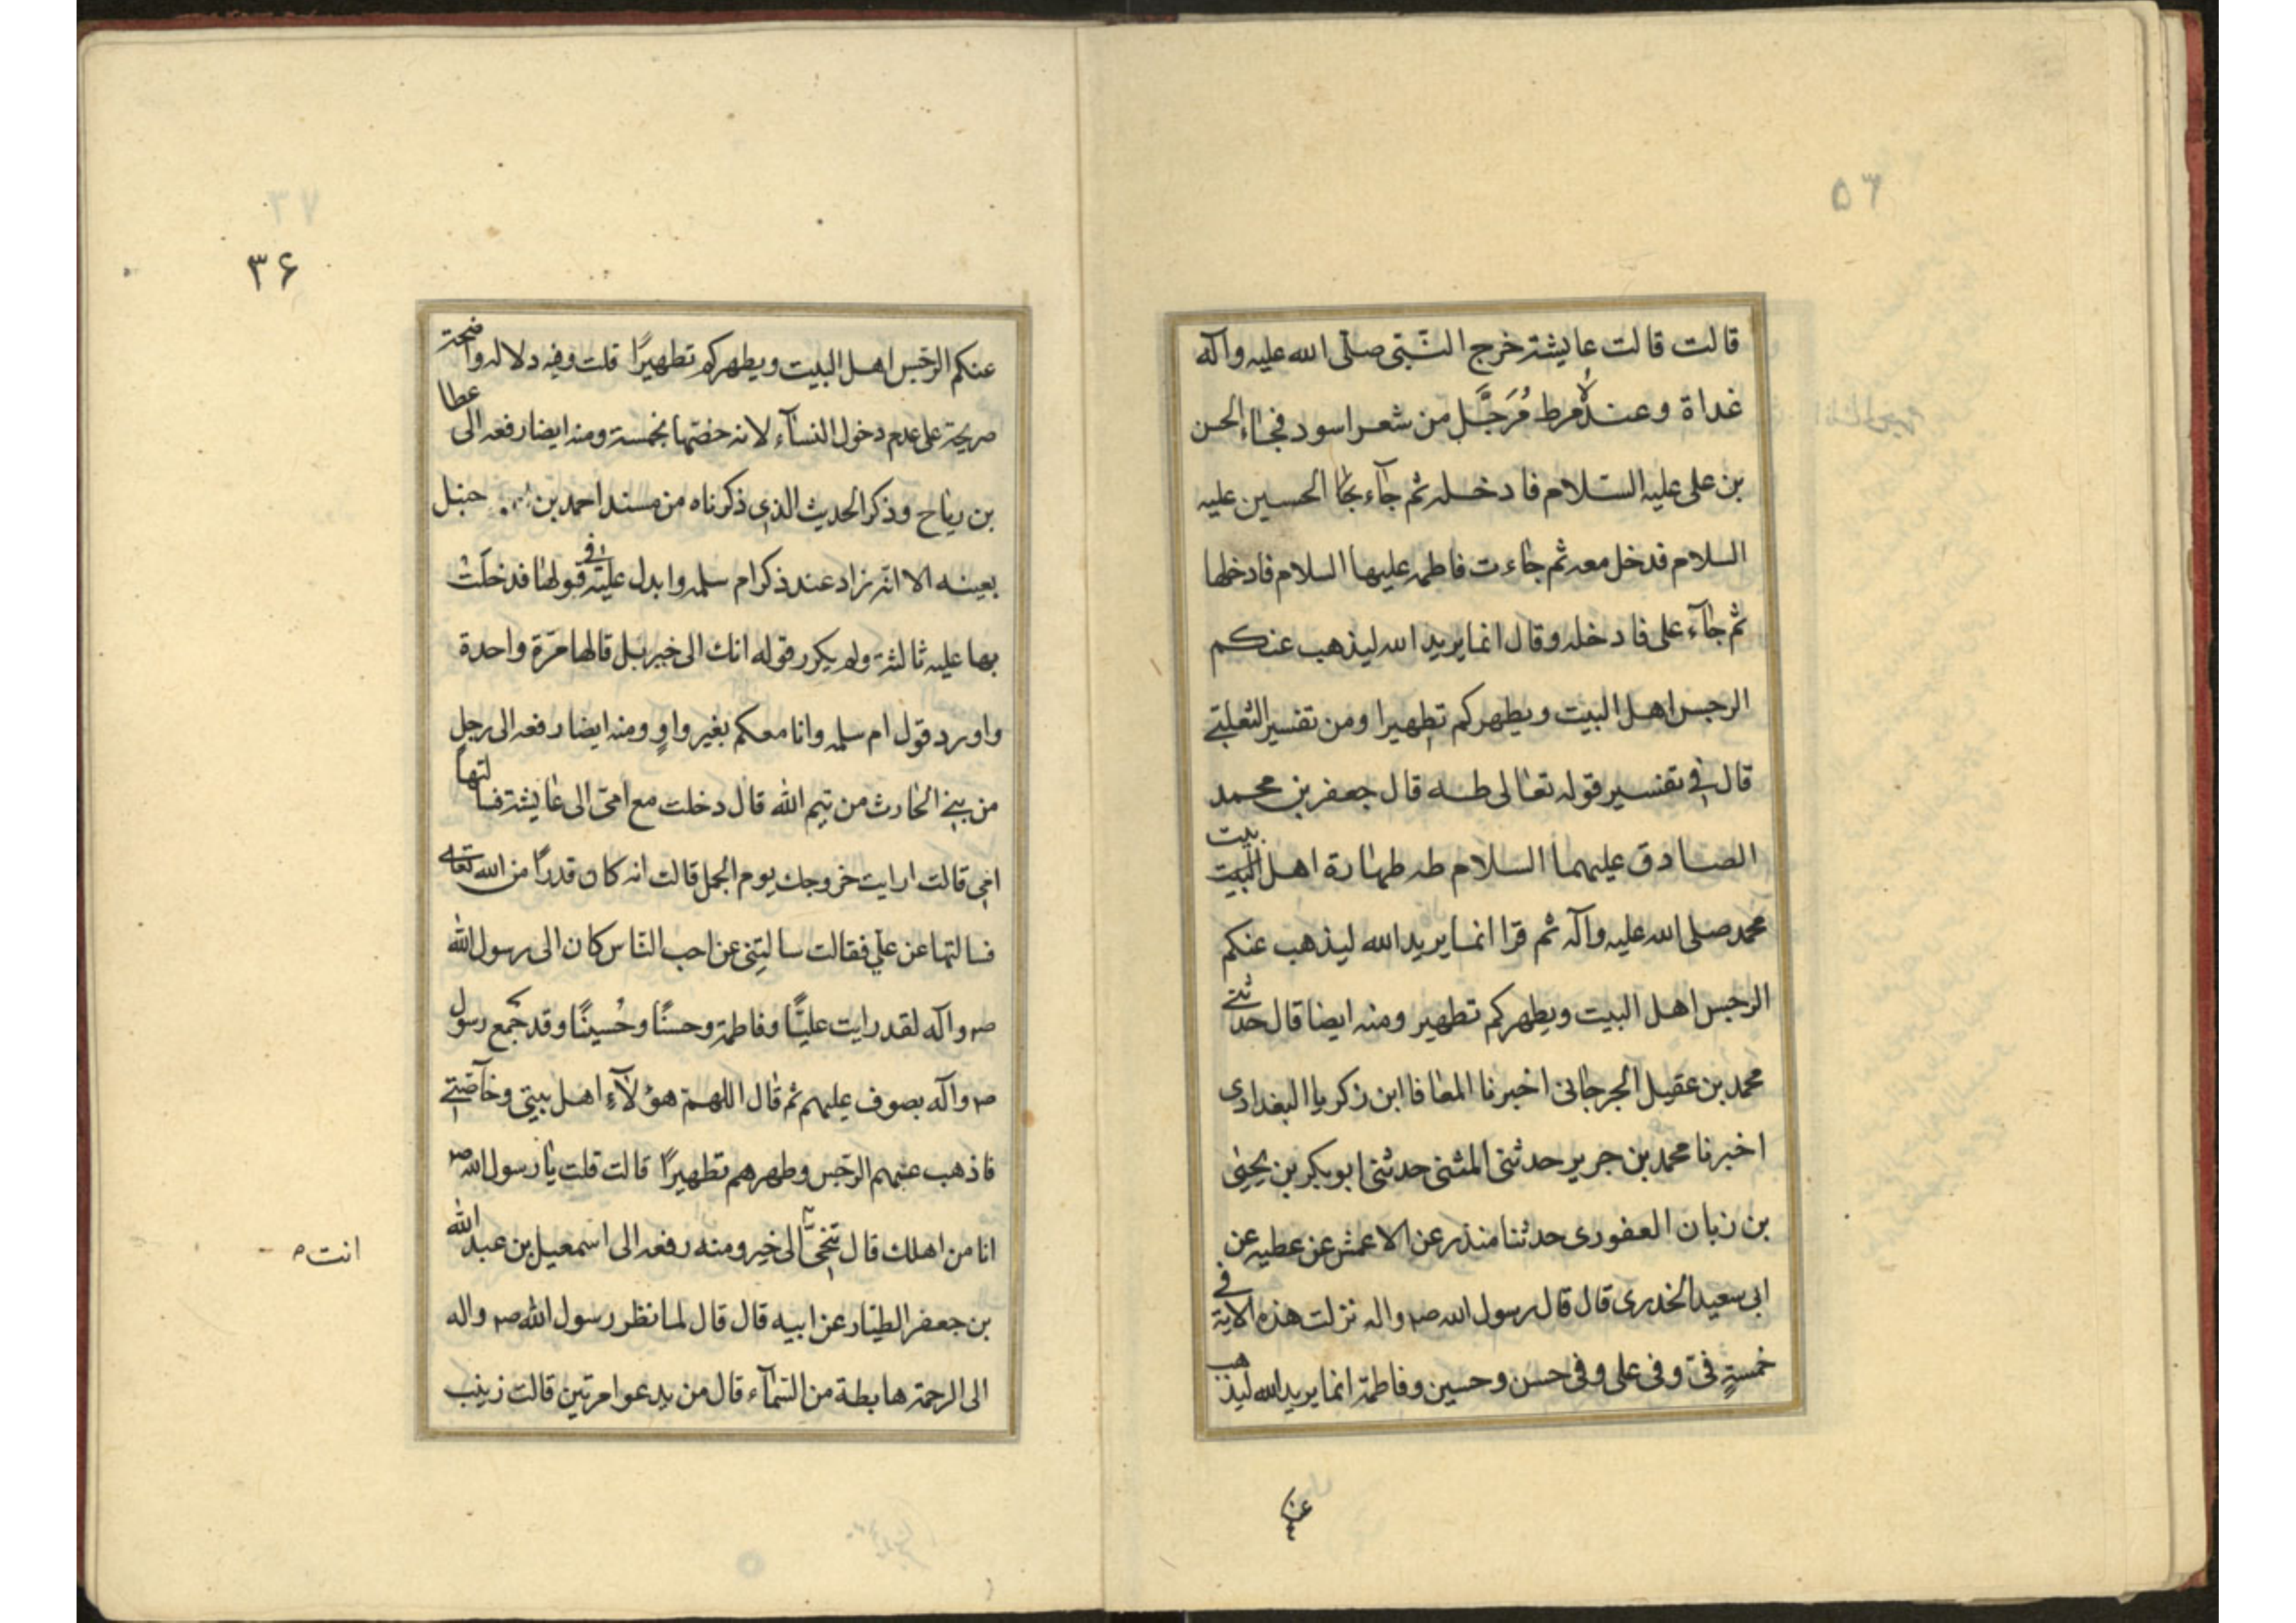 قالت قالت عايشة خرج النبي صلى الله عليه وآله
غداة وعنده مرط مُرَجَّل من شعر اسود فجاء الحسن
بن على عليه السلام فادخله ثم جآء الحسين عليه
السلام فدخل معه ثم جاءت فاطمه عليها السلام فادخلها
ثم جآء على فادخله وقال انما يريد الله ليذهب عنكم
الرجس اهل البيت ويطهركم تطهيرا ومن تفسير الثعلبي
قال في تفسير قوله تعالى طه قال جعفر بن محمد
الصادق عليهما السلام طه طهارة اهل البيت بيت
محمد صلى الله عليه وآله ثم قرا انما يريد الله ليذهب عنكم
الرجس اهل البيت ويطهركم تطهير ومنه ايضا قال حدثني
محمد بن عقيل الجرجانى اخبرنا المعافا ابن زكريا البغدادى
اخبرنا محمد بن جرير حدثنى المثنى حدثنى ابو بكر بن يحيى
بن زبان العفورى حدثنا منذر عن الاعمش عن عطيه عن
ابى سعيد الخدرى قال قال رسول الله صم واله نزلت هذه الاية في
خمسةٍ فىّ وفى على وفى حسن وحسين وفاطمة انما يريد الله ليذهب
۳۶
عنكم الرجس اهل البيت ويطهركم تطهيرًا قلت وفيه دلاله واضحة
صريحة على عدم دخول النسآء لانه خصّها بخمسة ومنه ايضا رفعه الى عطا
بن رياح وذكر الحديث الذي ذكرناه من مسند احمد بن حنبل
بعينه الا انه زاد عند ذكر ام سلمه وابدل عليه في قولها فدخلَتْ
بها عليه ثالثة ولم يكرر قوله انك الى خير بل قالها مرّة واحدة
واورد قول ام سلمه وانا معكم بغير واوٍ ومنه ايضا رفعه الى رجل
من بني الحارث من تيم الله قال دخلت مع امىّ الى عايشة فسالتها
امي قالت ارايت خروجك يوم الجمل قالت انه كان قدرًا من الله تعالى
فسالتها عن علي فقالت سالتِنى عن احب النّاس كان الى رسول الله
صم وآله لقد رايت عليًّا وفاطمة وحسنًا وحُسينًا وقد جمع رسول
صم وآله بصوف عليهم ثم قال اللهمّ هؤلآءِ اهل بيتى وخآصّتي
فاذهب عنهم الرّجس وطهرهم تطهيرًا قالت قلت يا رسول الله صم
انا من اهلك قال تنحّي الى خير ومنه رفعه الى اسمعيل بن عبد الله
بن جعفر الطيّار عن ابيه قال قال لما نظر رسول الله صم واله
الى الرحمة هابطة من السّمآء قال من يدعوا مرتين قالت زينب
انت